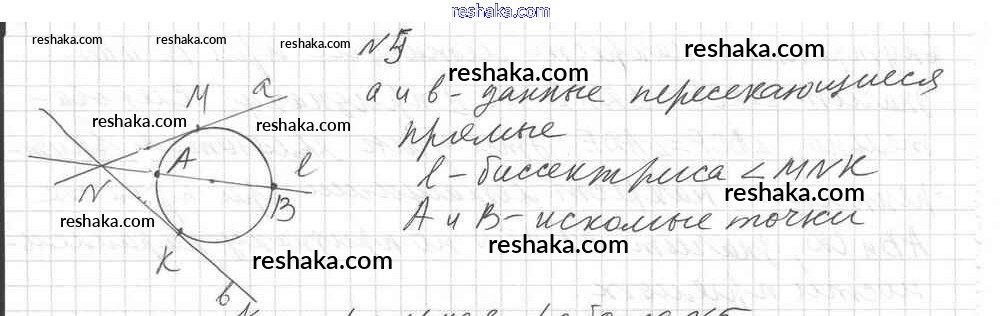 reshaka.com
reshaka.com reshaka.com reshaka.com N 5 reshaka.com
reshaka.com
a и b - данные пересекающиеся
прямые
l - биссектриса ∠MNK
reshaka.com
A и B - искомые точки
reshaka.com
M a
reshaka.com reshaka.com
A l
N B
reshaka.com
K reshaka.com
b